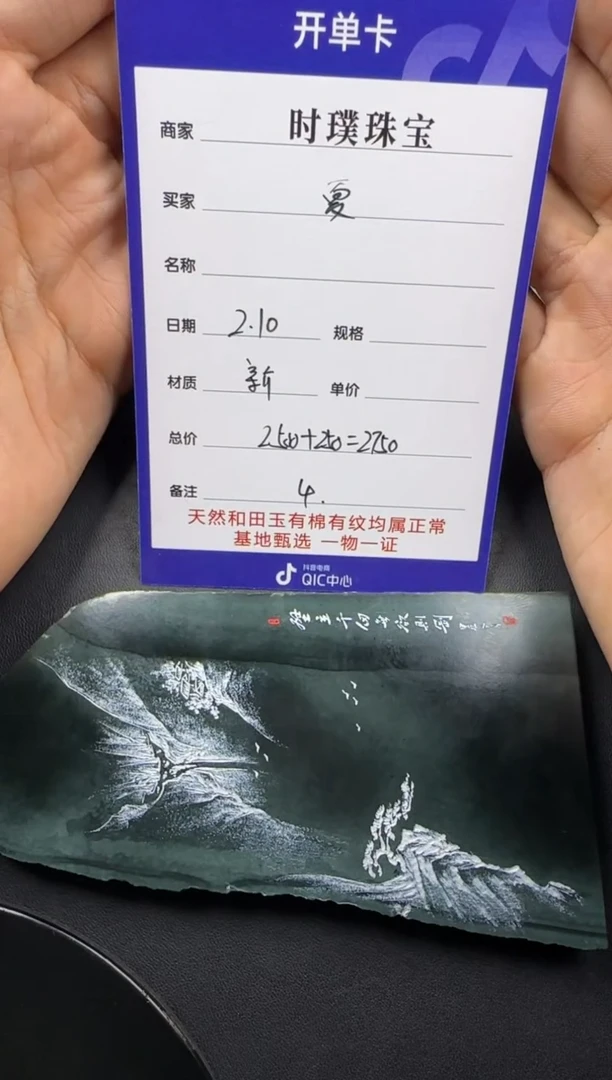 开单卡
商家 时璞珠宝
买家 夏
名称
日期 2.10 规格
材质 新 单价
总价 2500+250=2750
备注 4.
天然和田玉有棉有纹均属正常
基地甄选 一物一证
抖音电商
QIC中心